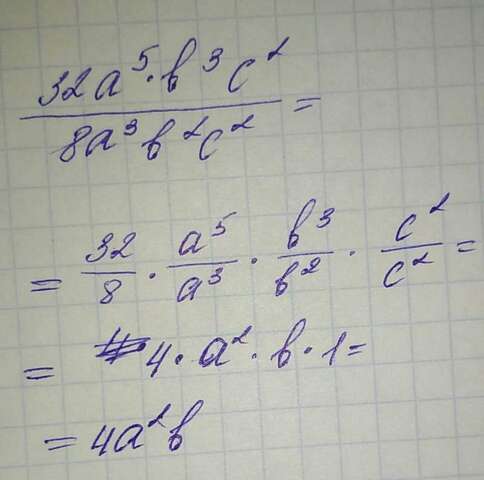 32a⁵·b³c²
8a³b²c² =
= 32/8 · a⁵/a³ · b³/b² · c²/c² =
= 4·a²·b·1=
= 4a²b